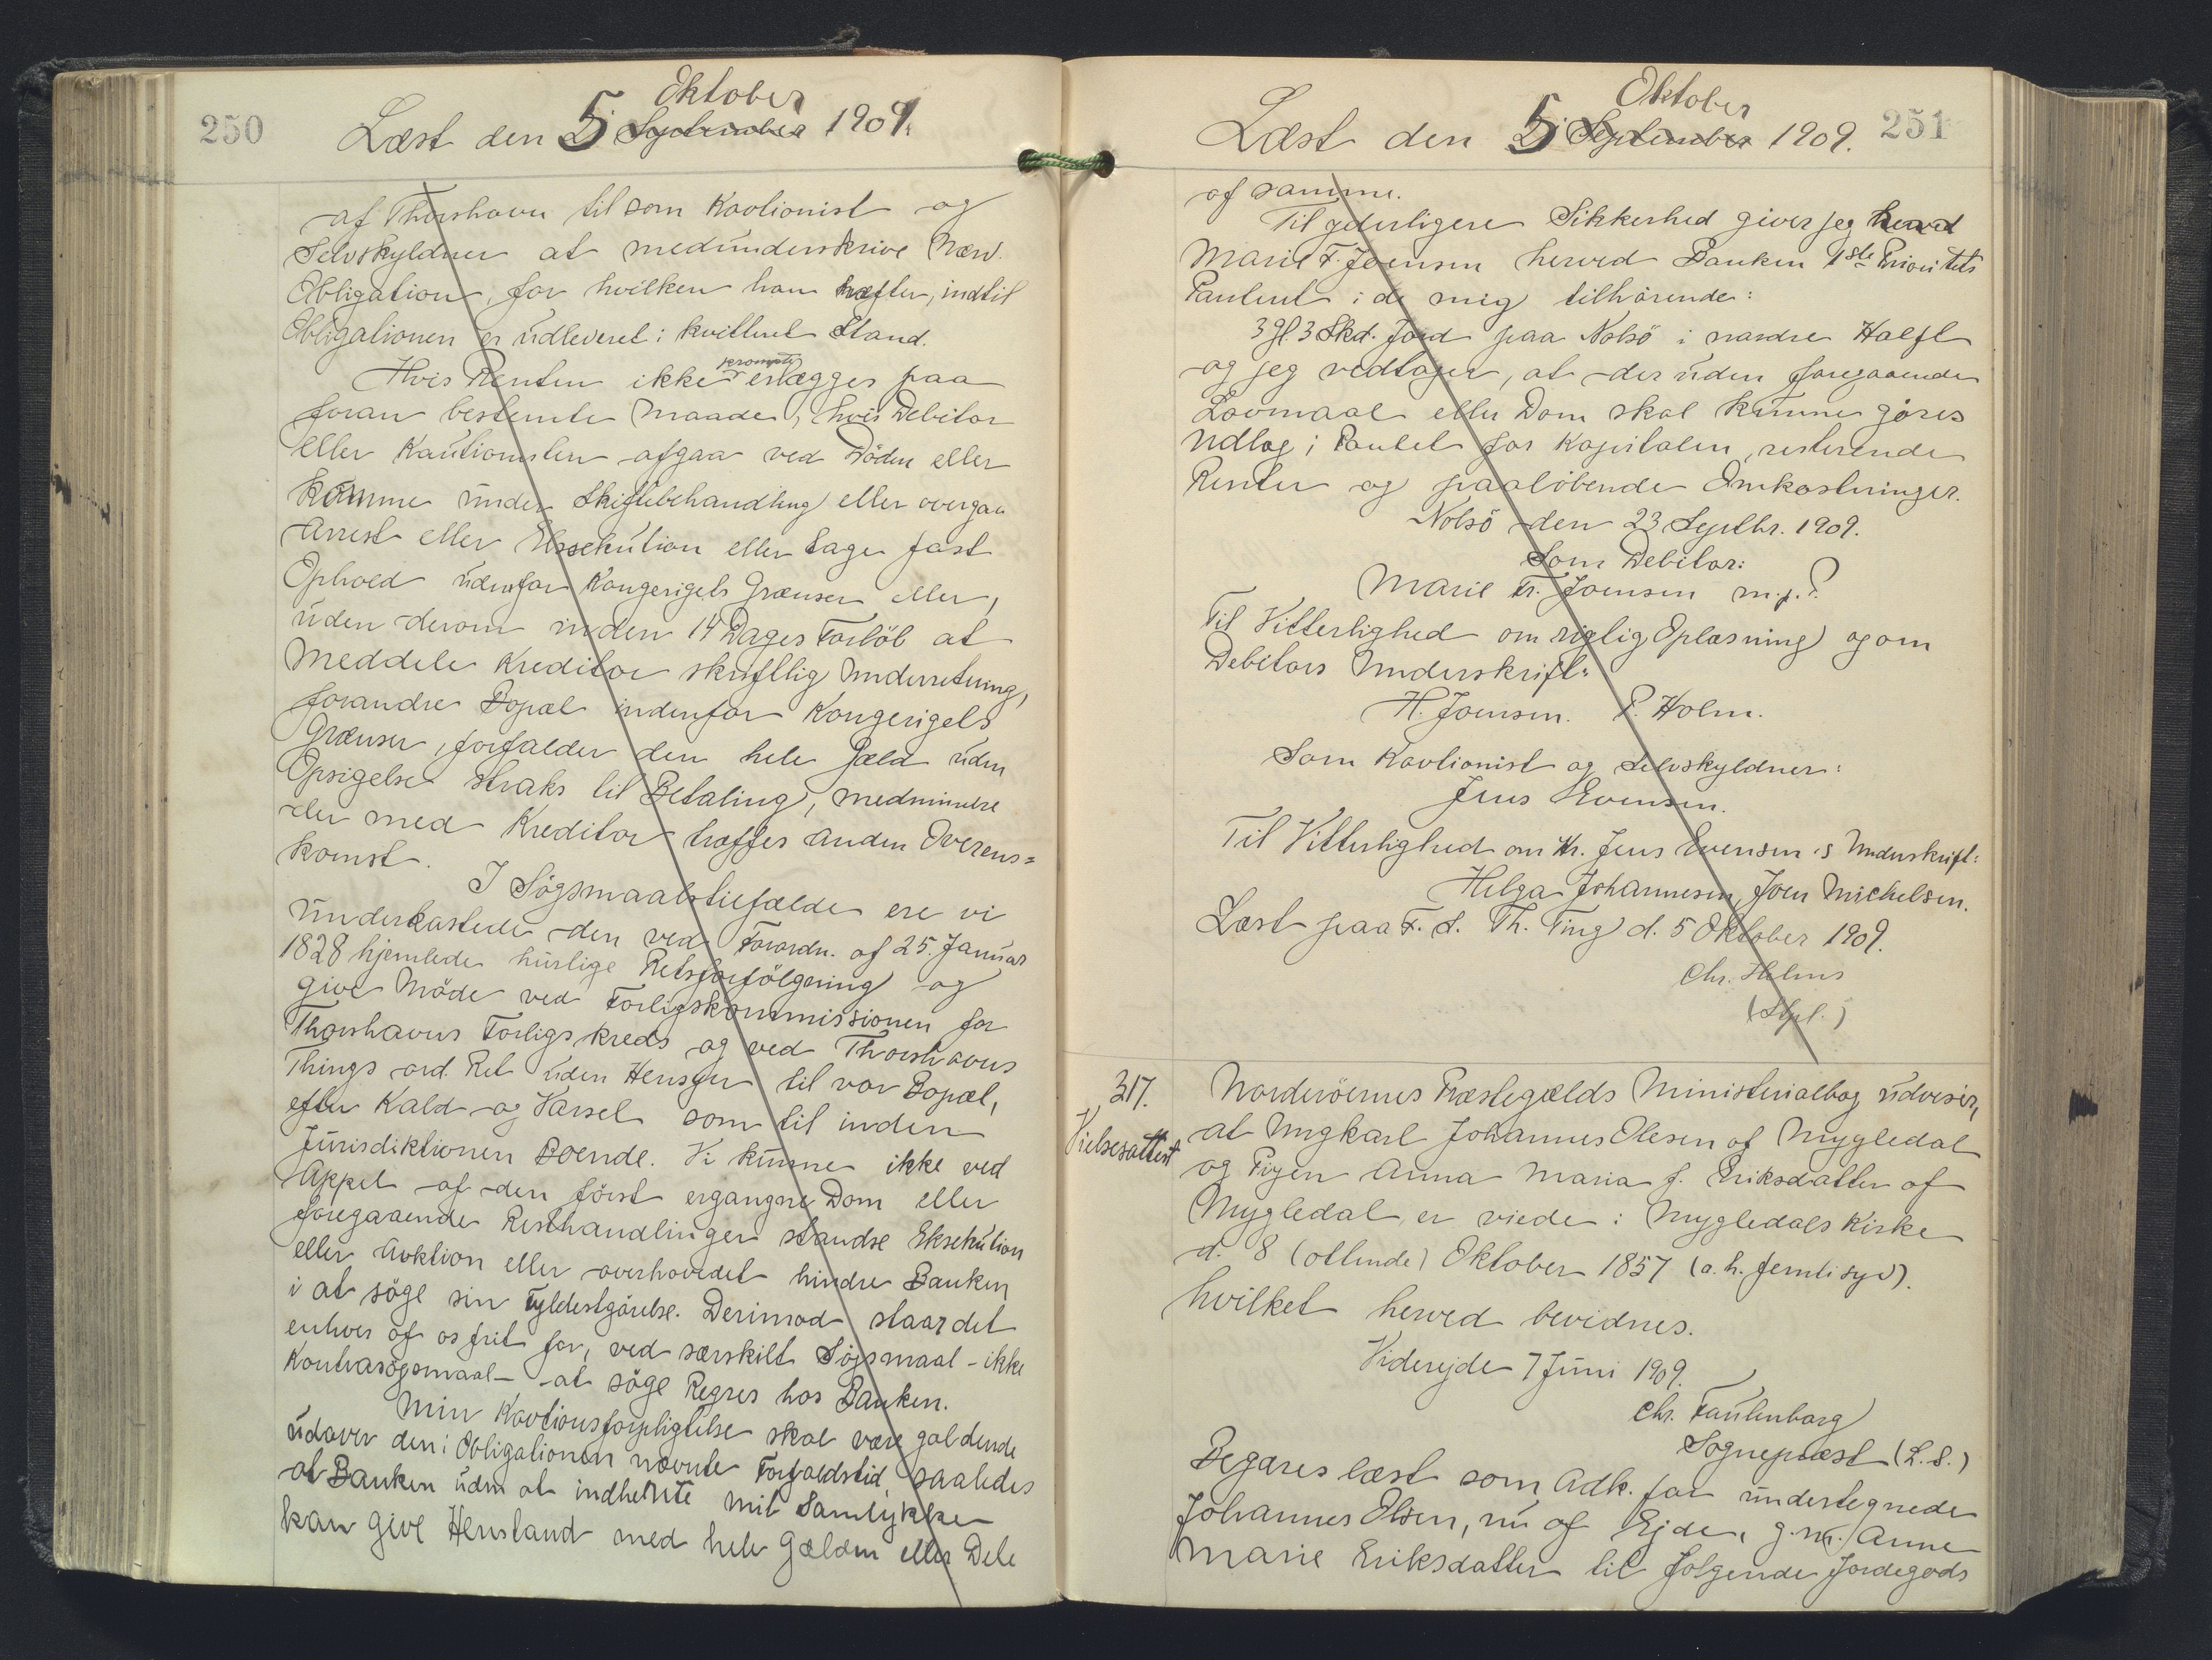 250
Oktober
Læst den 5 September 1909.
af Thorshavn til som Kavtionist og
Selvskyldner at medunderskrive nærv.
Obligation, for hvilken han hæfter, indtil
Obligationen er udleveret i kvitteret Stand.
prompte
Hvis Renten ikke erlægges paa
foran bestemte Maade, hvis Debitor
eller Kautionisten afgaa ved Döden eller
komme under Skiftebehandling eller overgaa
Arrest eller Eksekution eller tage fast
Ophold udenfor Kongerigets Grænser eller,
uden derom inden 14 Dages Forlöb at
meddele Kreditor skriftlig Underretning,
forandre Bopæl indenfor Kongerigets
Grænser, forfalder den hele Gæld uden
Opsigelse straks til Betaling, medmindre
der med Kreditor træffes anden Overens=
komst.
I Sögsmaalstilfælde ere vi
underkastede den ved Forordn. af 25. Januar
1828 hjemlede hurtige Retsforfölgning og
give Möde ved Forligskommissionen for
Thorshavns Forligskreds og ved Thorshavns
Things ord. Ret uden Hensyn til vor Bopæl,
efter Kald og Varsel som til inden
Jurisdiktionen Boende. Vi kunne ikke ved
Appel af den först ergangne Dom eller
foregaaende Resthandlinger standse Eksekution
eller Auktion eller overhovedet hindre Banken
i at söge sin Fyldestgörelse. Derimod staar det
enhver af os frit for, ved særskilt Sögsmaal - ikke
Kontrasögsmaal - at söge Regres hos Banken.
Min Kavtionsforpligtelse skal være gældende
udover den i Obligationen nævnte Forfaldstid, saaledes
at Banken uden at indhente mit Samtykke
kan give Henstand med hele Gælden eller Dele
Oktober
Læst den 5 September 1909. 251
af samme.
Til yderligere Sikkerhed giver jeg herved
Marie F. Joensen herved Banken 1ste Prioritets
Panteret i de mig tilhörende:
3 Gl. 3 Skd. Jord paa Nolsö i nordre Halft
og jeg vedtager, at der uden foregaaende
Lovmaal eller Dom skal kunne göres
Udlæg i Pantet for Kapitalen, resterende
Renter og paalöbende Omkostninger.
Nolsö den 23 Septbr. 1909.
Som Debitor:
Marie Fr. Joensen m.p.?
Til Vitterlighed om rigtig Oplæsning og om
Debitors Underskrift:
H. Joensen. P. Holm.
Som Kavtionist og Selvskyldner:
Jens Evensen.
Til Vitterlighed om Hr. Jens Evensen's Underskrift:
Helga Johannesen, Joen Michelsen.
Læst paa F. S. Th. Ting d. 5 Oktober 1909.
Chr. Helms
(Stpl.)
317.
Vielsesattest
Norderöernes Præstegælds Ministerialbog udviser,
at Ungkarl Johannes Olesen af Mygledal
og Pigen Anna Maria f. Eriksdatter af
Mygledal, er viede i Mygledals Kirke
d. 8 (ottende) Oktober 1857 (a. h. femti syv).
hvilket herved bevidnes.
Viderejde 7 Juni 1909.
Chr. Faulenborg
Sognepræst (L.S.)
Begæres læst som Adk. for undertegnede
Johannes Olsen, nu af Ejde, g. m. Anne
Marie Eriksdatter til fölgende Jordegods